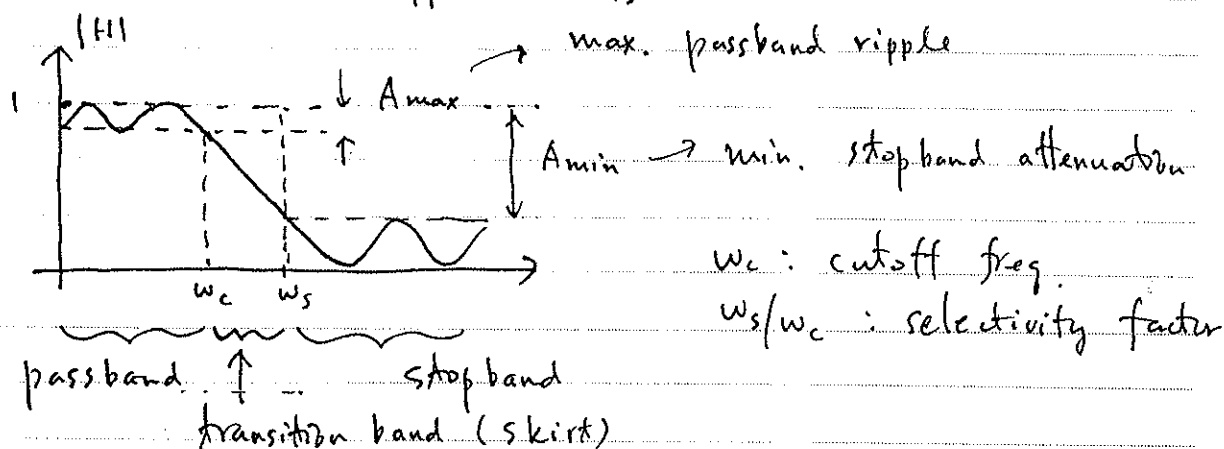 |H|
max. passband ripple
1
Amax
Amin → min. stopband attenuation
ωc ωs
ωc : cutoff freq.
ωs/ωc : selectivity factor
passband
stopband
transition band (skirt)